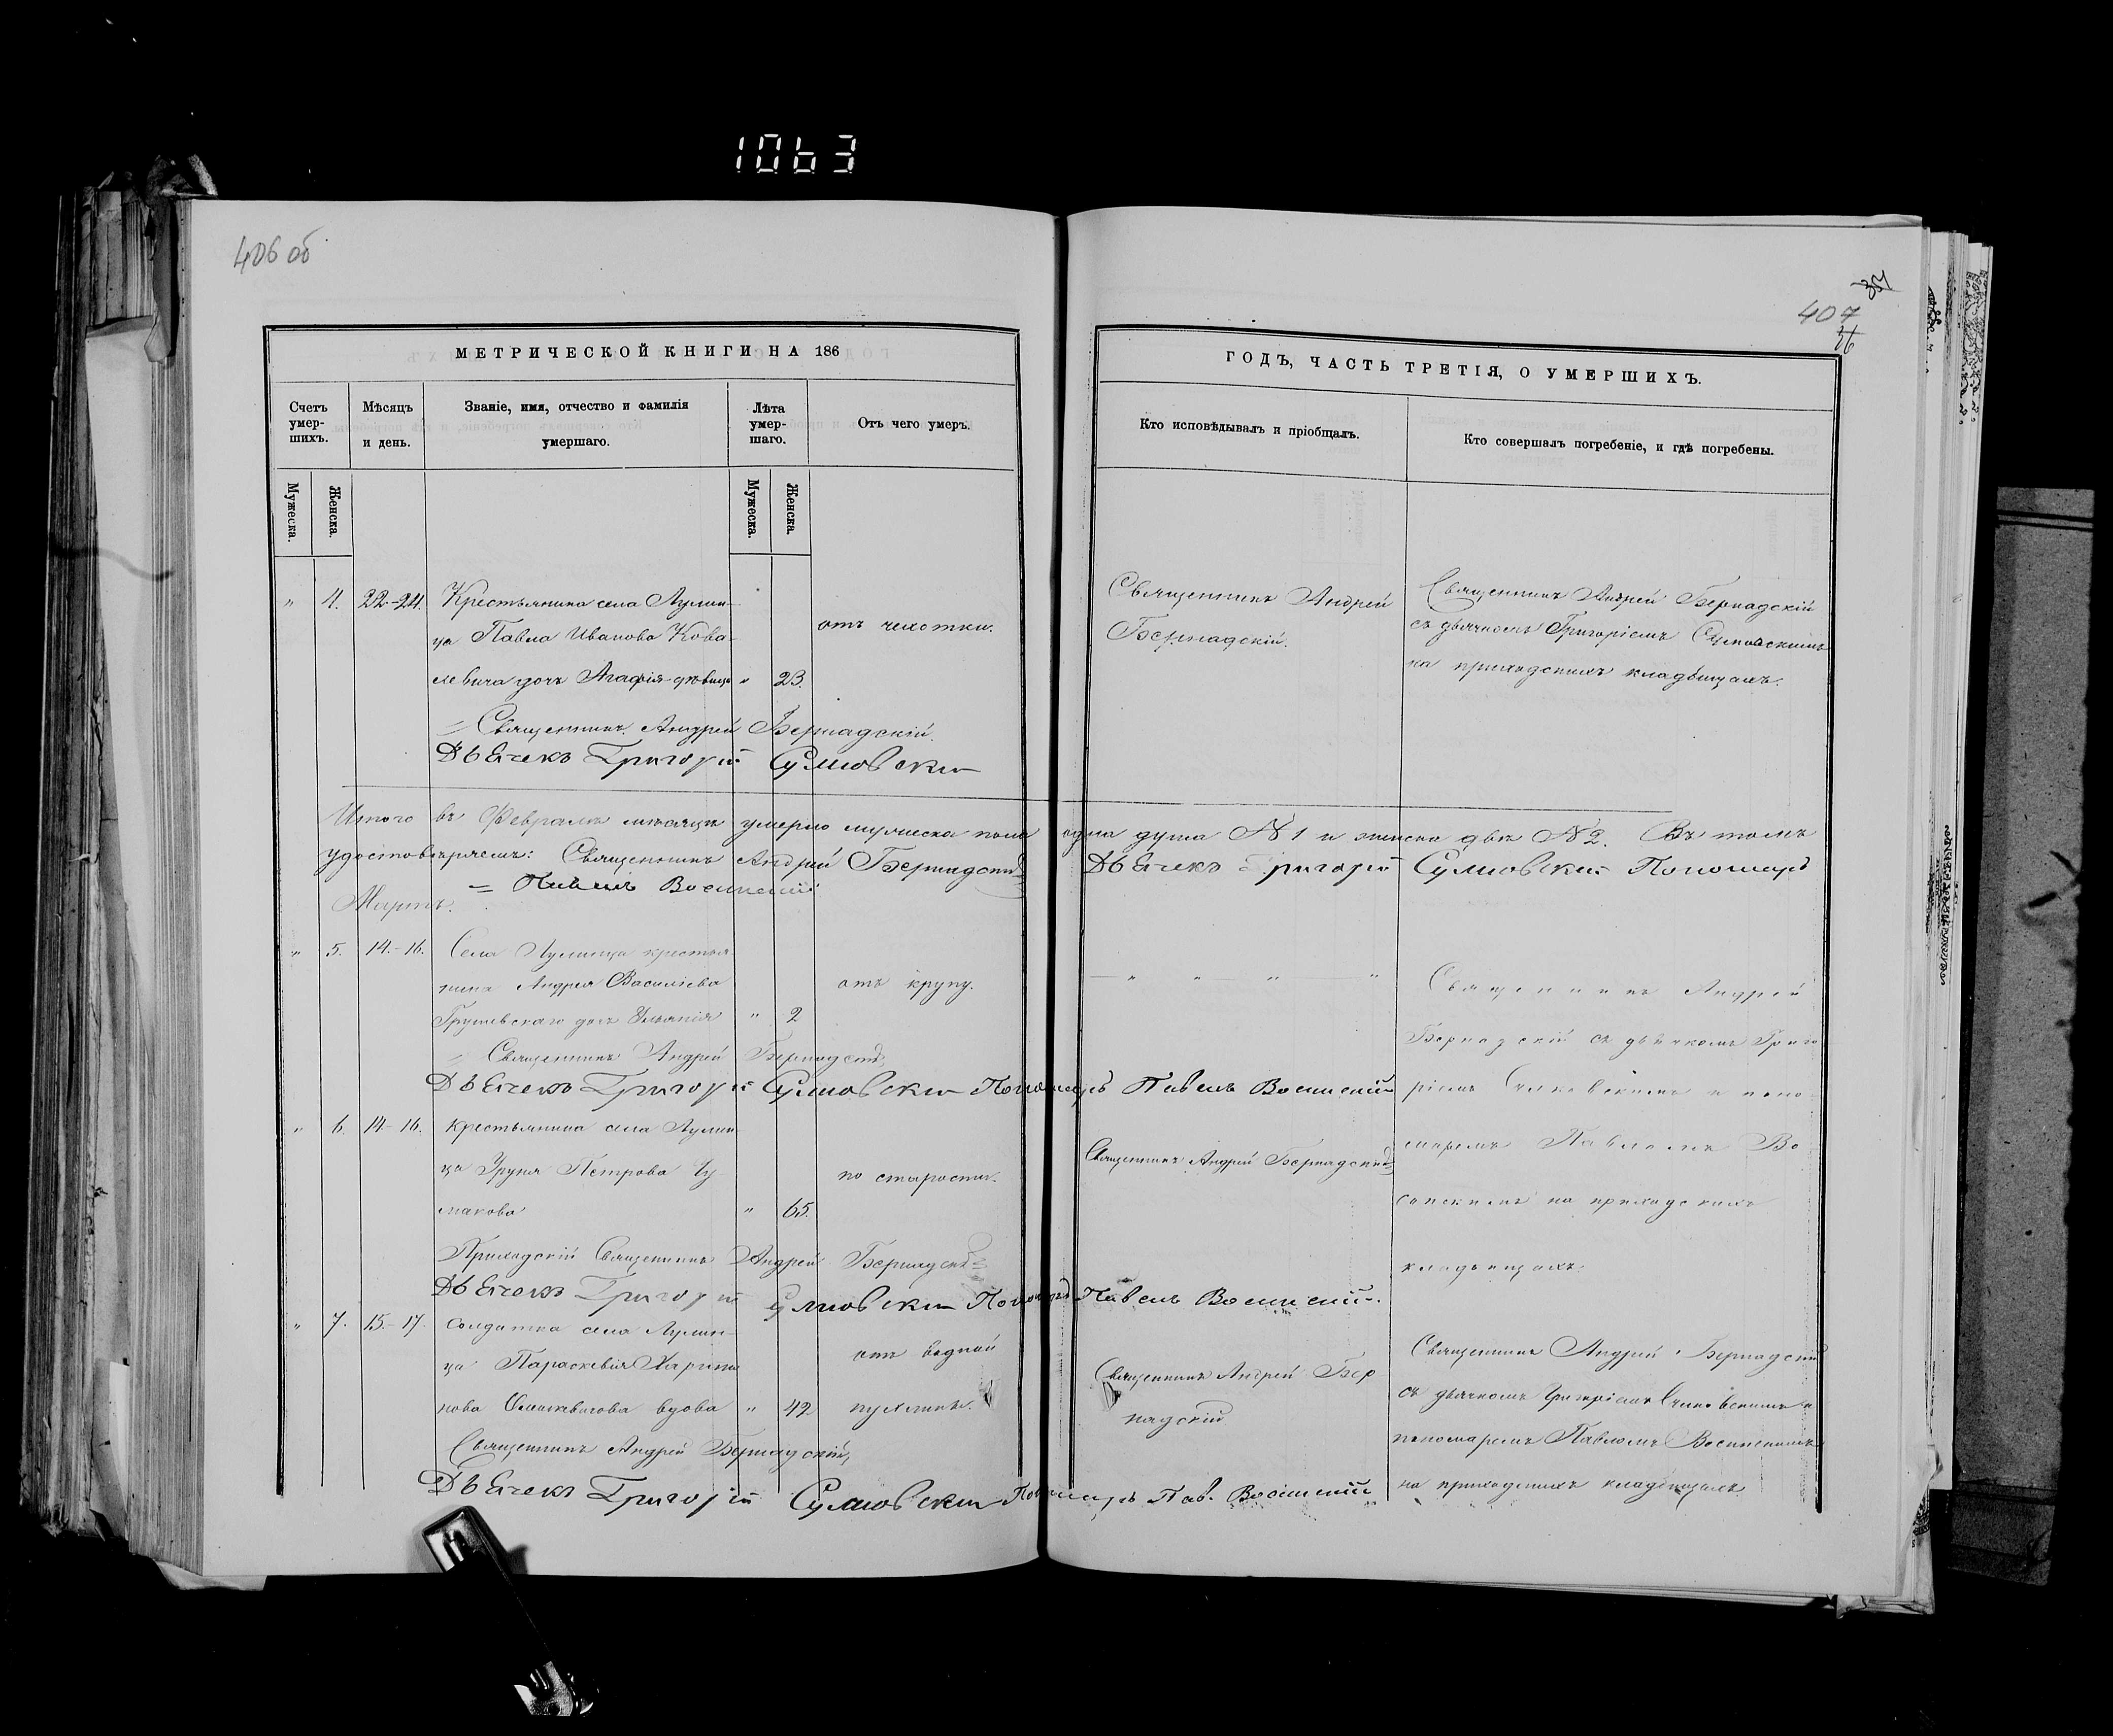 1063
406 об
МЕТРИЧЕСКОЙ КНИГИ НА 186
Счетъ умер-шихъ.
Мѣсяцъ и день.
Званіе, имя, отчество и фамилія умершаго.
Лѣта умер-шаго.
Отъ чего умеръ.
Мужеска.
Женска.
Мужеска.
Женска.
" 4. 22-24. Крестьянина села Лулин-
ца Павла Иванова Кова-
отъ чахотки.
левича дочь Агафія дѣвица " 23.
= Священникъ Андрей Бернадскій.
Дьячекъ Григорій
Итого въ Февралѣ мѣсяцѣ умерло мужеска пола
удостовѣряемъ: Священникъ Андрей Бернадскій
= Павелъ
Мартъ.
" 5. 14-16. Села Лулинца крестья-
нина Андрея Василіева
отъ крупу.
дочь " 2
= Священникъ Андрей Бернадскій
Дьячекъ Григорій Пономарь
" 6. 14-16. Крестьянина села Лулин-
ца Петрова Чу-
по старости.
макова " 65.
Приходскій Священникъ Андрей Бернадскій
Дьячекъ Григорій
" 7. 15-17. Солдатка села Лулин-
ца Параскевія Харито-
отъ водной
нова вдова " 42
пухлины.
Священникъ Андрей Бернадскій
Дьячекъ Григорій
407
36
ГОДЪ, ЧАСТЬ ТРЕТІЯ, О УМЕРШИХЪ.
Кто исповѣдывалъ и пріобщалъ.
Кто совершалъ погребеніе, и гдѣ погребены.
Священникъ Андрей
Бернадскій.
Священникъ Андрей Бернадскій
съ дьячкомъ Григоріемъ
на приходскихъ кладбищахъ.
одна душа № 1 и женска двѣ № 2. Въ томъ
Дьячекъ Григорій Пономарь
— " " — " — "
Священникъ Андрей
Бернадскій съ дьячкомъ Григо
ріемъ и поно-
Павелъ
Священникъ Андрей Бернадскій
маремъ Павломъ Во
на приходскихъ
кладбищахъ.
Павелъ
Священникъ Андрей Бер
надскій
Священникъ Андрей Бернадскій
съ дьячкомъ Григоріемъ и
пономаремъ Павломъ
на приходскихъ кладбищахъ.
Пономарь Пав.